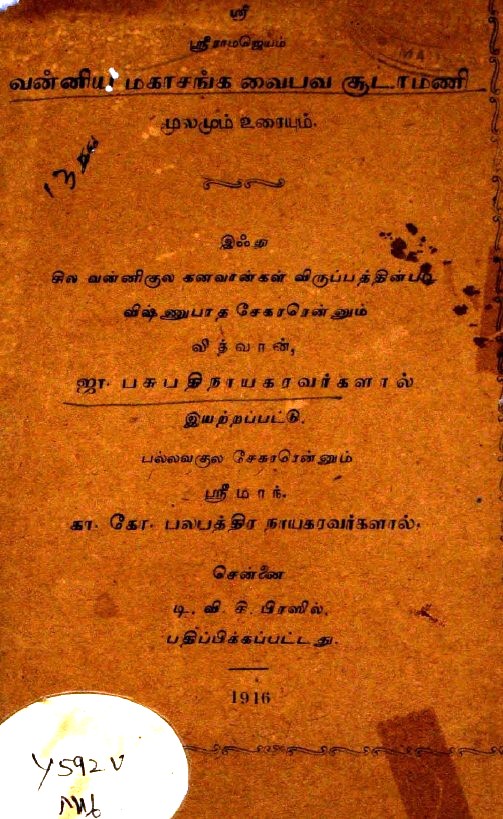 ஸ்ரீ
ஸ்ரீராமஜெயம்
வன்னிய மகாசங்க வைபவ சூடாமணி
மூலமும் உரையும்.
இஃது
சில வன்னிகுல கனவான்கள் விருப்பத்தின்படி
விஷ்ணுபாத சேகரரென்னும்
வித்வான்,
ஜா. பசுபதிநாயகரவர்களால்
இயற்றப்பட்டு.
பல்லவகுல சேகரரென்னும்
ஸ்ரீமாந்.
கா. கோ. பலபத்திர நாயகரவர்களால்,
சென்னை
டி. வி. சி. பிரஸில்,
பதிப்பிக்கப்பட்டது.
1916
Y592V